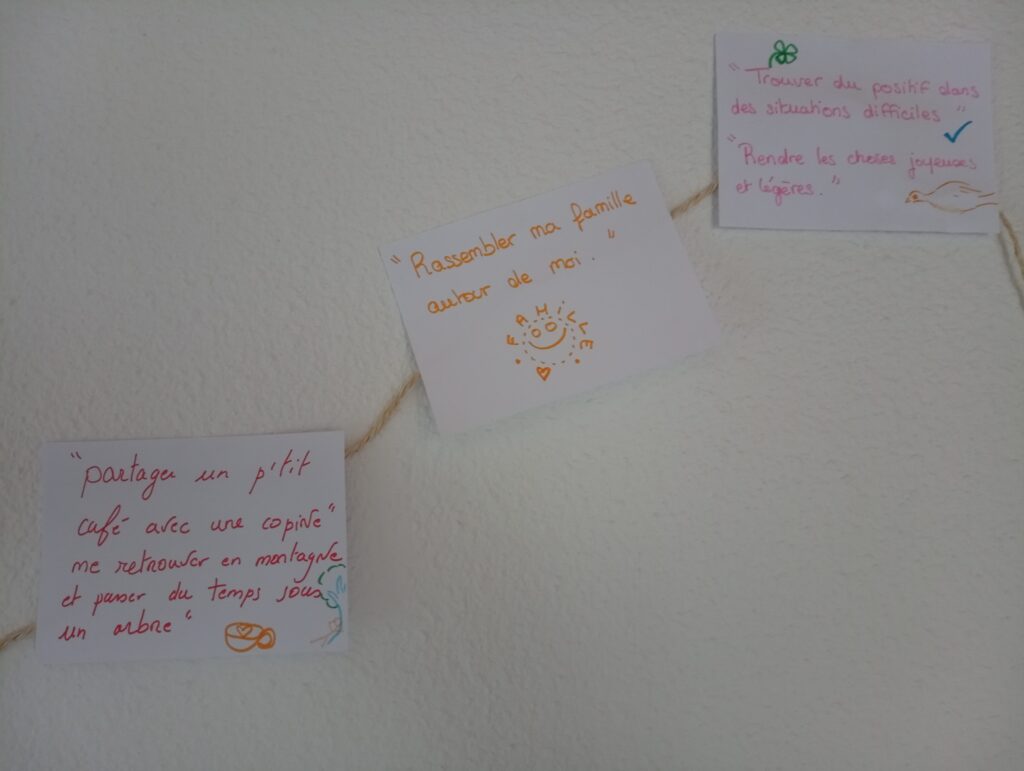 "partager un p'tit
café avec une copine"
me retrouver en montagne
et passer du temps sous
un arbre"
"Rassembler ma famille
autour de moi."
FAMILLE
"Trouver du positif dans
des situations difficiles"
"Rendre les choses joyeuses
et légères."